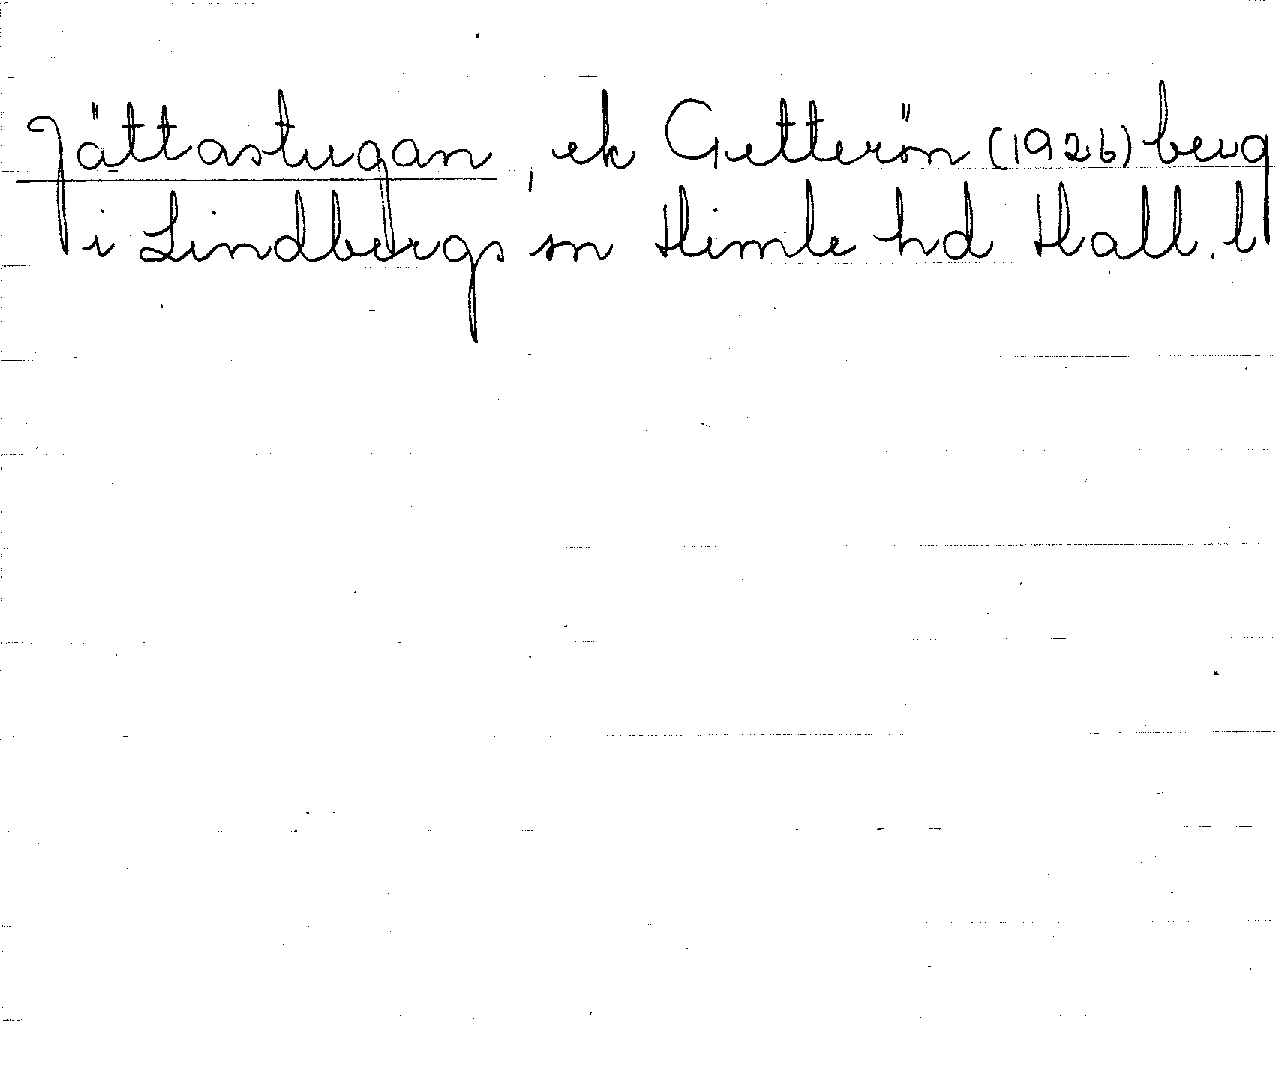 Jättastugan, ek Getterön (1926) berg
i Lindbergs sn Himle hd Hall. l